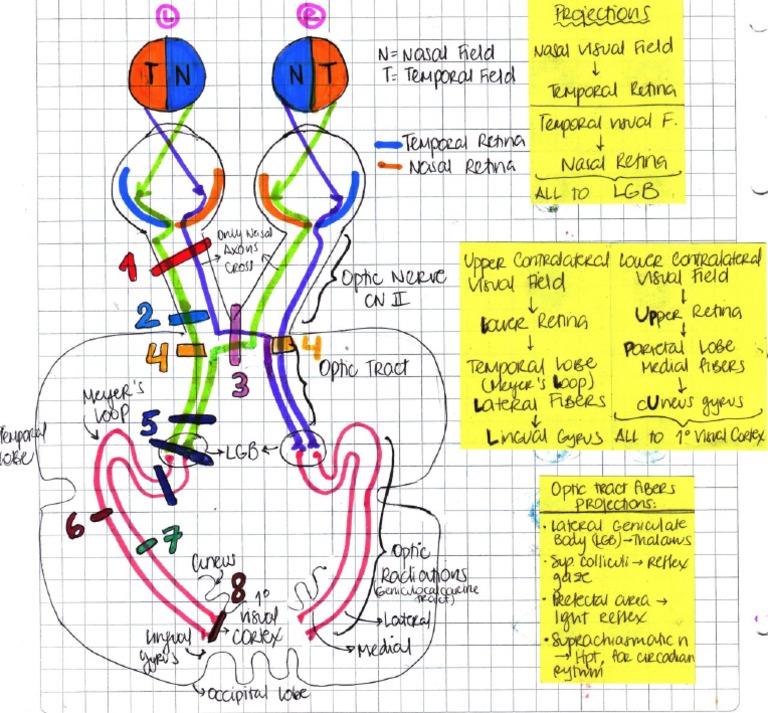 L
R
T N
N T
N= Nasal Field
T= Temporal Field
Temporal Retina
Nasal Retina
Only Nasal
Axons
Cross
1
2
3
4
4
5
6
7
8
Optic Nerve
CN II
Optic Tract
Meyer's
Loop
Temporal
Lobe
LGB
Cuneus
1º
Visual
Cortex
Lingual
gyrus
Occipital lobe
Optic
Radiations
(Geniculocalcarine
Tract)
Lateral
Medial
Projections
Nasal Visual Field
↓
Temporal Retina
Temporal visual F.
↓
Nasal Retina
ALL TO LGB
Upper Contralateral
Visual Field
↓
Lower Retina
↓
Temporal Lobe
(Meyer's Loop)
Lateral Fibers
↓
Lingual Gyrus
Lower Contralateral
Visual Field
↓
Upper Retina
↓
Parietal Lobe
Medial fibers
↓
cUneus gyrus
ALL TO 1º Visual Cortex
Optic tract fibers
projections:
· Lateral Geniculate
Body (LGB)→Thalamus
· Sup colliculi → Reflex
gaze
· Pretectal area →
light reflex
· Suprachiasmatic n
→ Hpt, for circadian
rythm